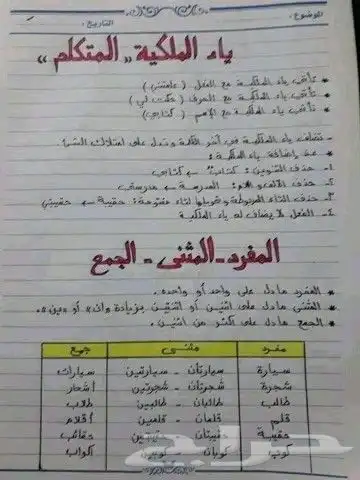 الموضوع:
التاريخ:
ياء الملكية " المتكلم "
* تأتي ياء الملكية مع الفعل ( علمتني )
* تأتي ياء الملكية مع الحرف ( حكت لي )
* تأتي ياء الملكية مع الإسم ( كتابي )
- تضاف ياء الملكية في آخر الكلمة وتدل على امتلاك الشيء
* عند إضافة ياء الملكية :
1- حذف التنوين : كتاب ← كتابي
2- حذف الألف واللام : المدرسة ← مدرستي
3- حذف التاء المربوطة وقلبها لتاء مفتوحة : حقيبة ← حقيبتي
4- الفعل لا يضاف له ياء الملكية
المفرد - المثنى - الجمع
* المفرد مادل على واحد أو واحدة .
* المثنى مادل على اثنين أو اثنتين بزيادة « ان » أو « ين » .
* الجمع مادل على أكثر من اثنين .
مفرد مثنى جمع
سيارة سيارتان - سيارتين سيارات
شجرة شجرتان - شجرتين أشجار
طالب طالبان - طالبين طلاب
قلم قلمان - قلمين أقلام
حقيبة حقيبتان - حقيبتين حقائب
كوب كوبان - كوبين أكواب
حراج